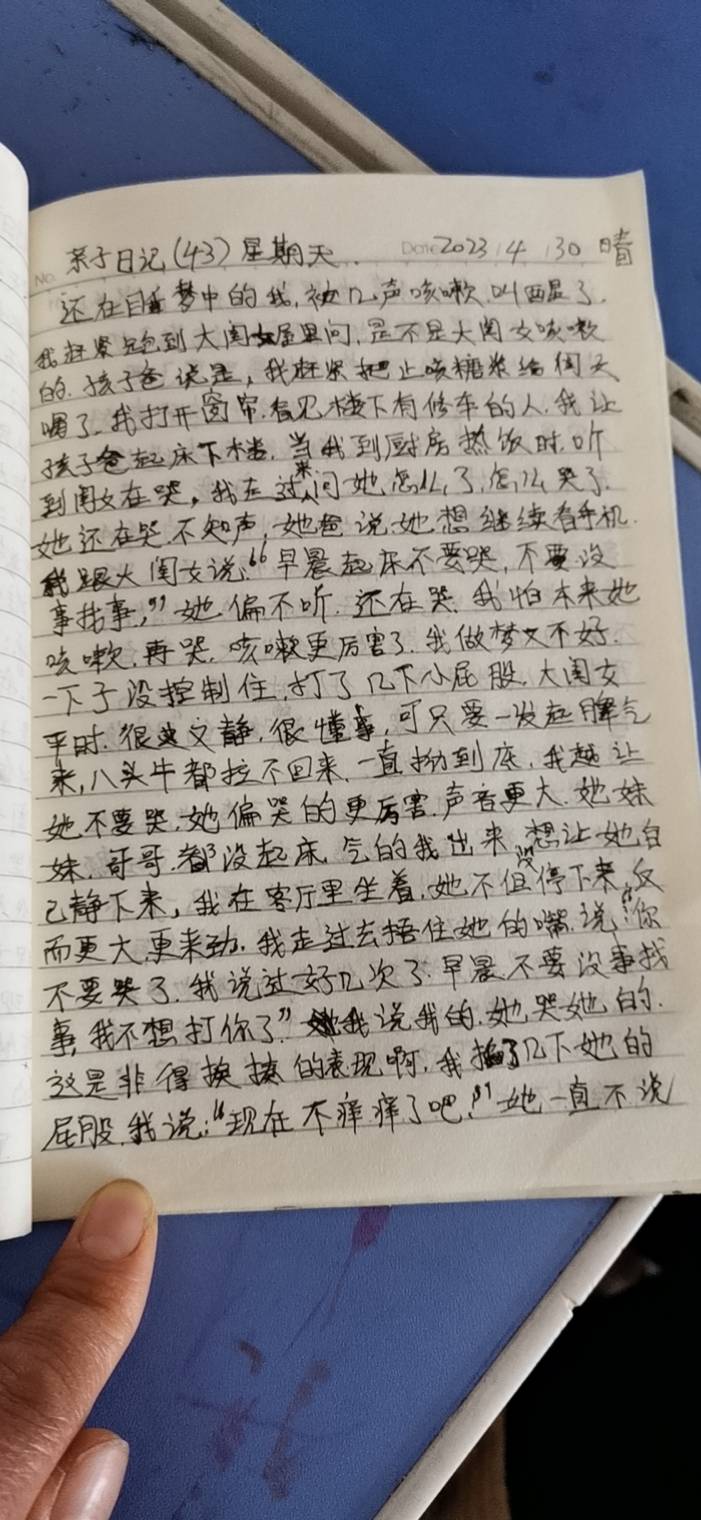 亲子日记(43)星期天. Date 2023 4 30 晴
No.
还在睡梦中的我,被几声咳嗽叫醒了.
我赶紧跑到大闺女屋里问,是不是大闺女咳嗽
的.孩子爸说是,我赶紧把止咳糖浆给闺女
喝了.我打开窗帘.看见楼下有修车的人.我让
孩子爸起床下楼.当我到厨房热饭时.听
到闺女在哭,我在过来问她怎么了,怎么哭了.
她还在哭不知声,她爸说她想继续看手机.
我跟大闺女说:“早晨起床不要哭,不要没
事找事,”她偏不听.还在哭.我怕本来她
咳嗽,再哭,咳嗽更厉害了.我做梦又不好.
一下子没控制住.打了几下小屁股.大闺女
平时.很文静,很懂事,可只要一发起脾气
来,八头牛都拉不回来.一直拗到底,我越让
她不要哭,她偏哭的更厉害.声音更大.她妹
妹.哥哥.都没起床.气的我出来,想让她自
己静下来,我在客厅里坐着.她不但没停下来,反
而更大.更来劲.我走过去捂住她的嘴.说:“你
不要哭了.我说过好几次了.早晨不要没事找
事,我不想打你了”我说我的.她哭她的.
这是非得挨揍的表现啊,我打了几下她的
屁股.我说:“现在不痒痒了吧,”她一直不说